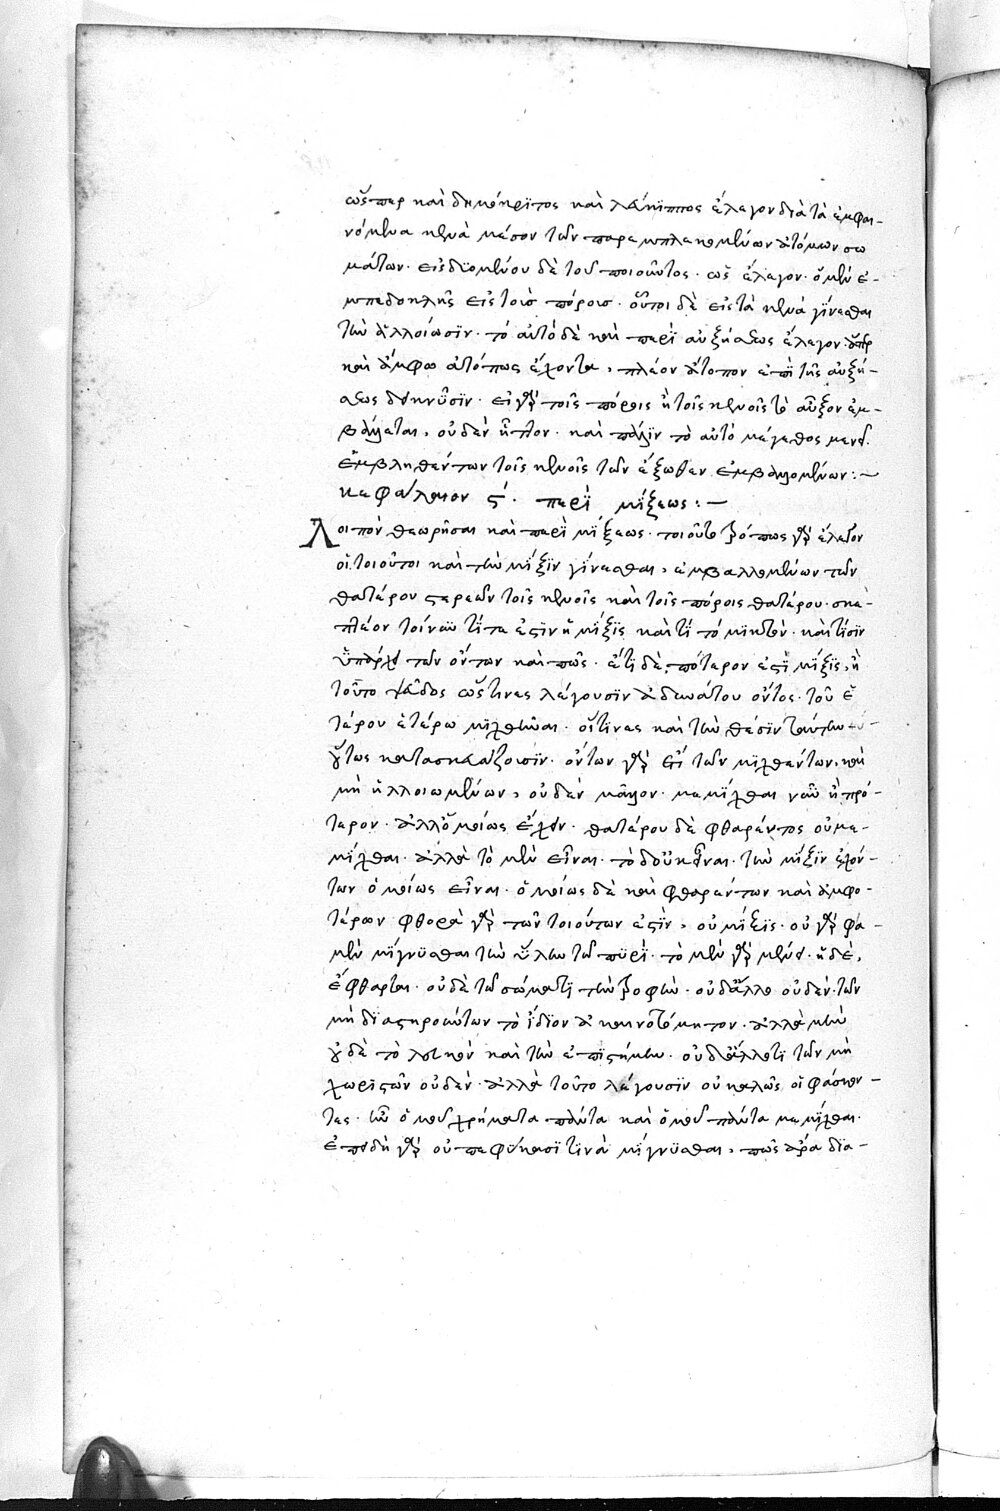 ὥσπερ καὶ δημόκριτος καὶ λεύκιππος ἔλεγον διὰ τὰ ἐμφαι-
νόμενα κενὰ μέσον τῶν παρεμπλεκομένων ἀτόμων σω
μάτων. εἰσδυομένου δὲ τοῦ ποιοῦντος. ὡς ἔλεγον. ὁ μὲν ἐ-
μπεδοκλῆς εἰς τοὺς πόρους. οὗτοι δὲ εἰς τὰ κενὰ γίνεσθαι
τὴν ἀλλοίωσϊν. τὸ αὐτὸ δὲ καὶ περὶ αὐξήσεως ἔλεγον. ἅπερ
καὶ ἄμφω ἀτόπως ἔχοντα, πλέον ἄτοπον ἐπὶ τῆς αὐξή-
σεως δεικνῦσϊν. εἰ γὰρ τοῖς πόροις ἢ τοῖς κενοῖς τὸ αὖξον ἐμ-
βάλλεται, οὐδὲν ἧττον. καὶ πάλϊν τὸ αὐτὸ μέγεθος μενεῖ.
ἐμβληθέντων τοῖς κενοῖς τῶν ἔξωθεν ἐμβαλλομένων:~
κεφάλαιον ϛ΄. περὶ μίξεως:~
Λοιπὸν θεωρῆσαι καὶ περὶ μίξεως. τοιοῦτο τρόπως γὰρ ἔλεγον
οἱ τοιοῦτοι καὶ τὴν μίξϊν γίνεσθαι, ἐμβαλλομένων τῶν
θατέρου στερεῶν τοῖς κενοῖς καὶ τοῖς πόροις θατέρου. σκε-
πτέον τοίνυν τί τε ἐστϊν ἡ μίξϊς καὶ τί τὸ μικτὸν. καὶ τίσϊν
ὑπάρχει τῶν ὄντων καὶ πῶς. ἔτι δὲ, πότερον ἐστὶ μίξϊς, ἢ
τοῦτο ψεῦδος ὥς τινες λέγουσϊν ἀδυνάτου ὄντος. τοῦ ἑ
τέρου ἑτέρω μϊχθῆναι. οἵτϊνες καὶ τὴν θέσϊν ταύτην
οὕτως κατασκευάζουσϊν. ὄντων γὰρ ἔτι τῶν μϊχθέντων, καὶ
μὴ ἠλλοιωμένων, οὐδὲν μᾶλλον. μεμίχθαι νῦν ἢ πρό-
τερον. ἀλλ' ὁμοίως ἔχειν. θατέρου δὲ φθαρέντος οὐ με-
μίχθαι. ἀλλὰ τὸ μὲν εἶναι. τὸ δ' οὐκ εἶναι. τὴν μίξϊν ἐχόν-
των ὁμοίως εἶναι. ὁμοίως δὲ καὶ φθαρέντων καὶ ἀμφο-
τέρων φθορὰ γὰρ τῶν τοιούτων ἐστὶν, οὐ μίξϊς. οὐ γὰρ φα-
μὲν μίγνυσθαι τὴν ὕλην τῶ πυρὶ. τὸ μὲν γὰρ μένει. ἡ δὲ,
ἔφθαρται. οὐδὲ τῶ σώματι τὴν τροφὴν. οὐδ' ἄλλο οὐδὲν. τῶν
μὴ διατηρούντων τὸ ἴδϊον ἀκαινοτόμητον. ἀλλὰ μὴν
οὐδὲ τὸ λευκὸν καὶ τὴν ἐπιστήμην. οὐδ' ἄλλό τι τῶν μὴ
χωριστῶν οὐδὲν. ἀλλὰ τοῦτο λέγουσϊν οὐ καλῶς οἱ φάσκον-
τες. ἦν ὁμοῦ χρήματα πάντα καὶ ὁμοῦ πάντα μεμίχθαι.
ἐπειδὴ γὰρ οὐ πεφύκασϊ τϊνὰ μίγνυσθαι, πῶς ἄρα δϊα-